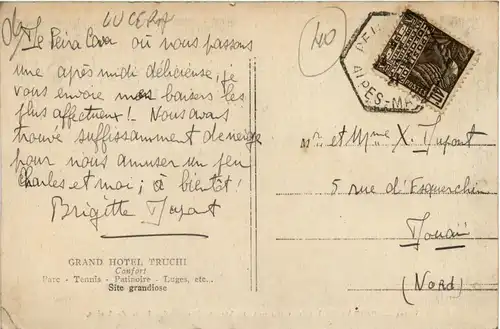 LUCERAM
40
De Peira Cava où nous passons
une après midi délicieuse, je
vous envoie mes baisers les
plus affectueux ! Nous avons
trouvé suffisamment de neige
pour nous amuser un peu
Charles et moi ; à bientôt !
Brigitte Dupont
GRAND HOTEL TRUCHI
Confort
Parc - Tennis - Patinoire - Luges, etc...
Site grandiose
ALPES-M
Mr et Mme X. Dupont
5 rue d'Esquerchin
Douai
(Nord)